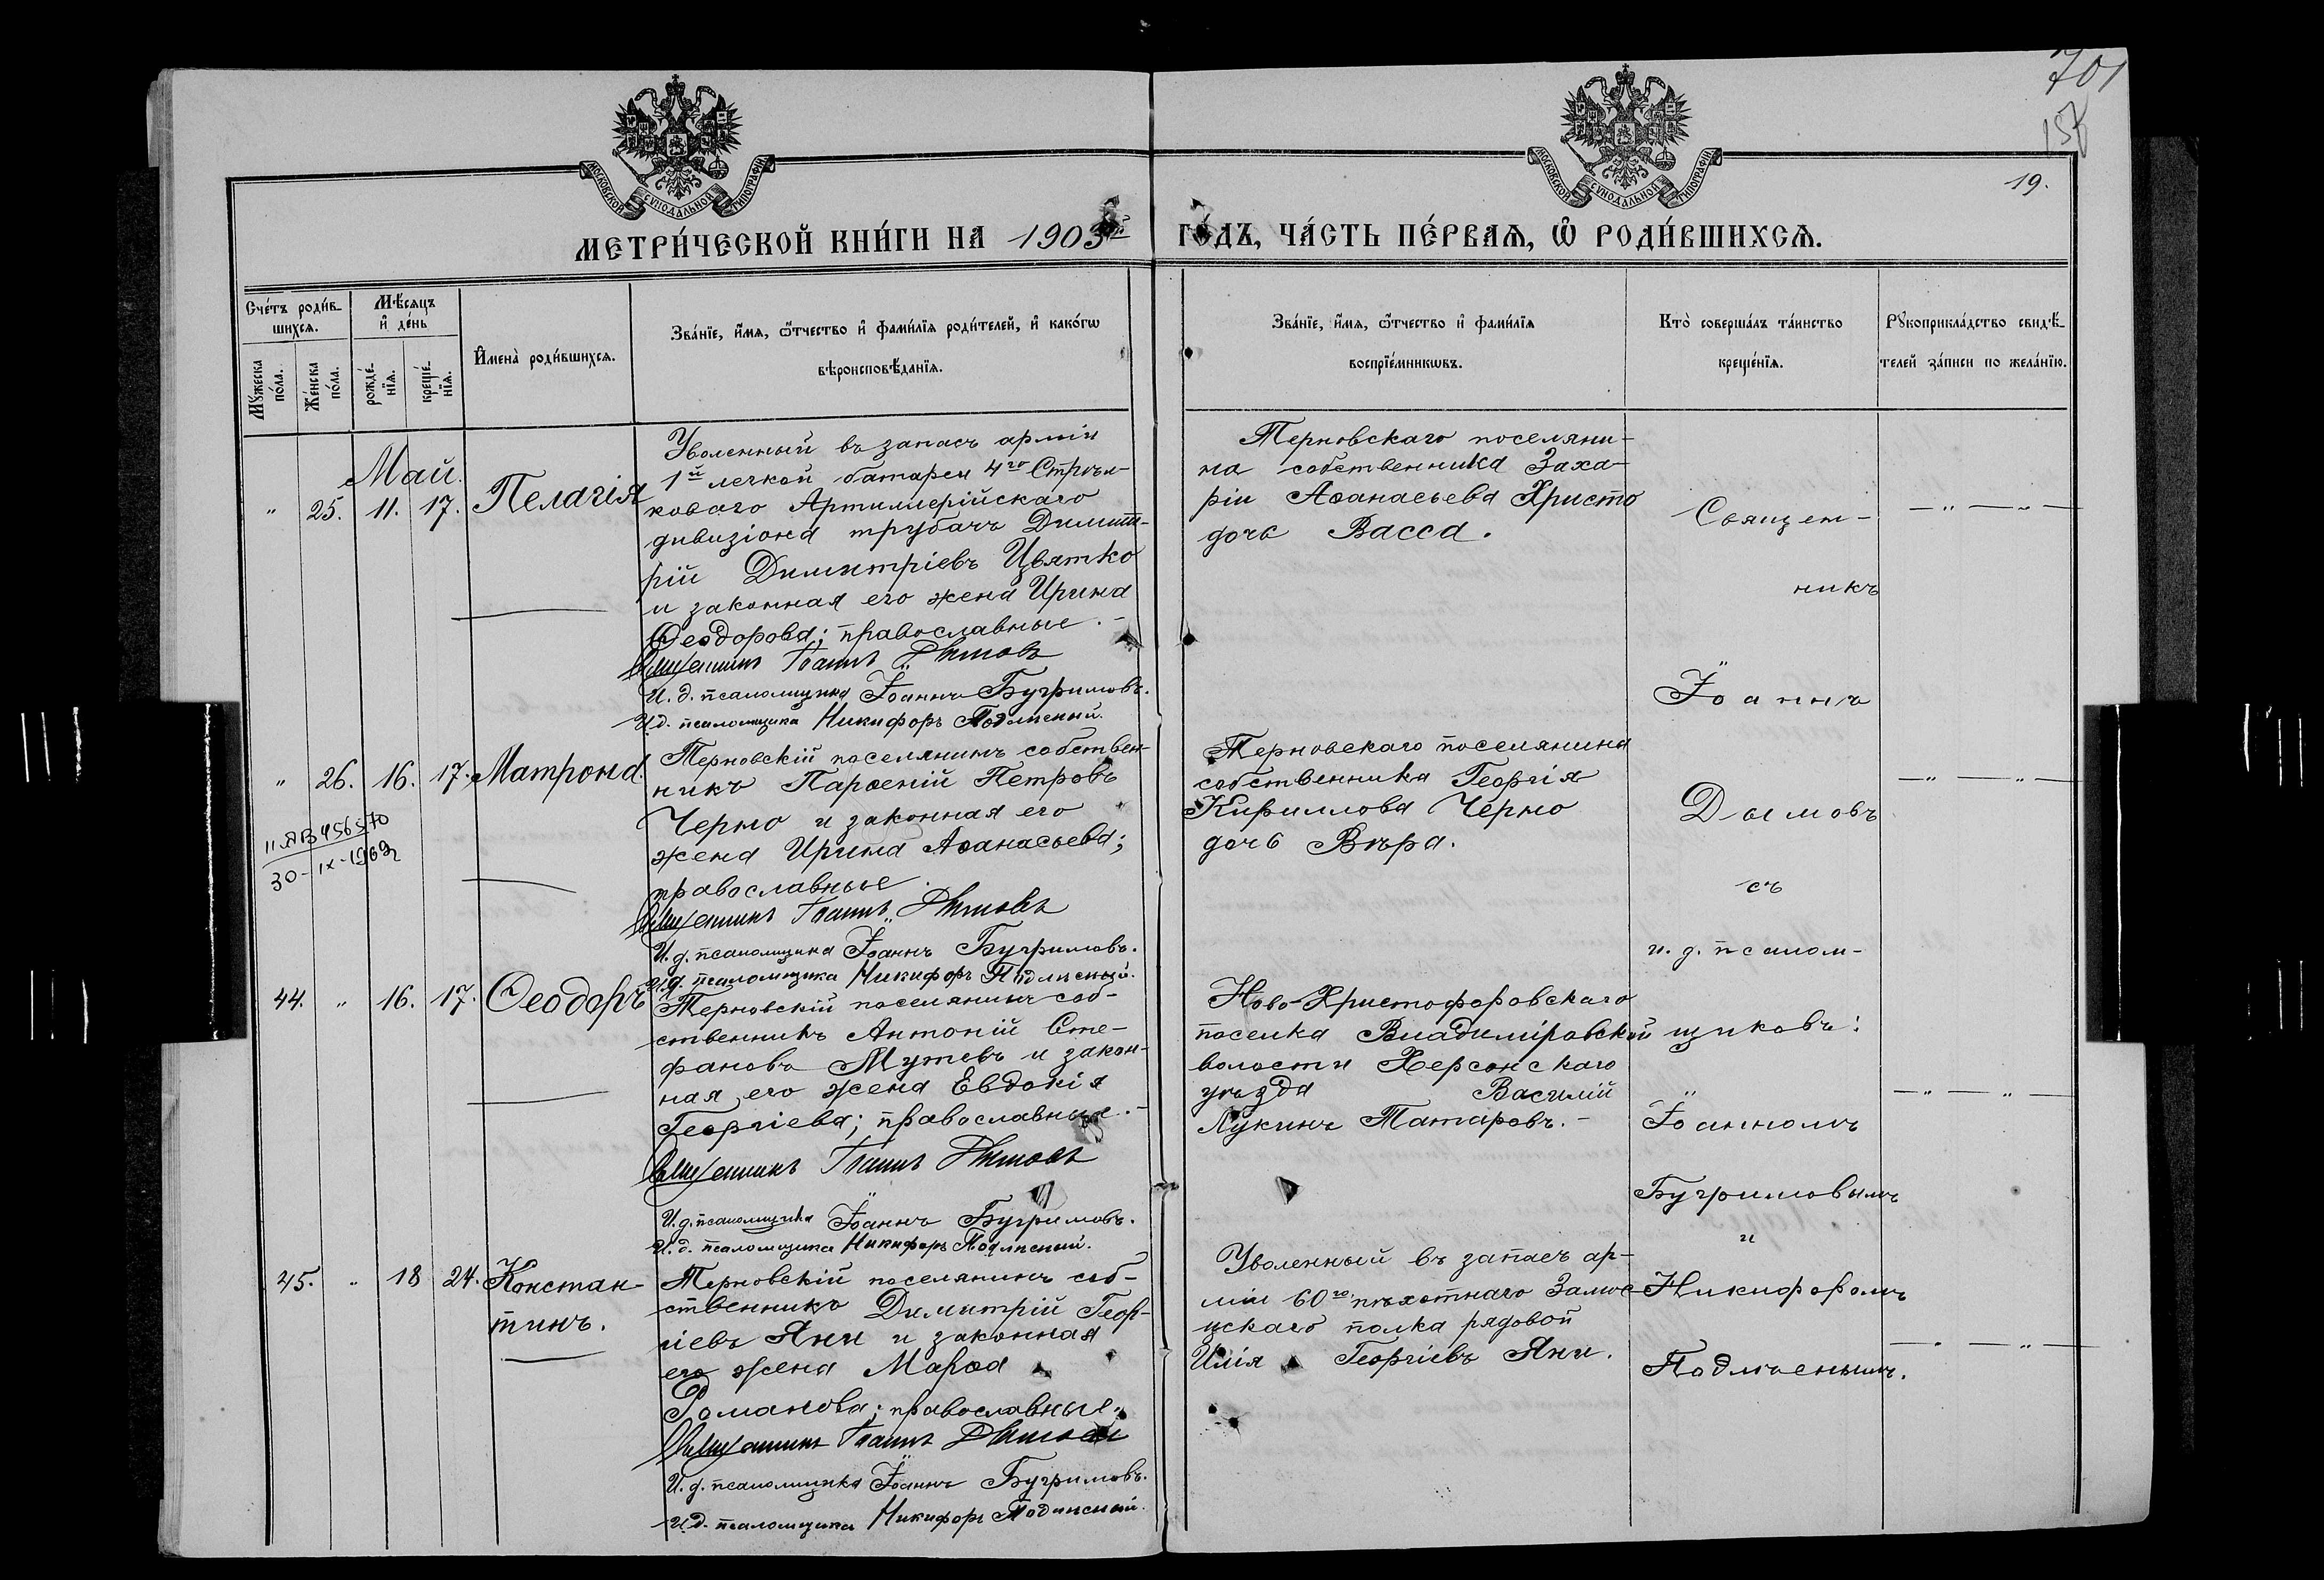 701
157
19.
МОСКОВСКОЙ СѴНОДАЛЬНОЙ ТИПОГРАФІИ
МОСКОВСКОЙ СѴНОДАЛЬНОЙ ТИПОГРАФІИ
МЕТРИ́ЧЕСКОЙ КНИ́ГИ НА 1903й ГО́ДЪ, ЧА́СТЬ ПЕ́РВАѦ, Ѡ РОДИ́ВШИХСѦ.
Сче́тъ роди́в-
шихсѧ.
Мꙋ́жеска
по́ла.
Же́нска
по́ла.
Мѣ́сѧцъ
и҆ де́нь
рожде́-
нїѧ.
креще́-
нїѧ.
И҆мена̀ роди́вшихсѧ.
Зва́нїе, и҆́мѧ, ѻ҆́тчество и҆ фами́лїѧ роди́телей, и҆ како́гѡ
вѣроисповѣ́данїѧ.
Зва́нїе, и҆́мѧ, ѻ҆́тчество и҆ фами́лїѧ
воспрїе́мникѡвъ.
Кто̀ соверша́лъ та́инство
креще́нїѧ.
Рꙋкоприкла́дство свидѣ́-
телей за́писи по жела́нїю.
Май.
" 25. 11. 17. Пелагія
Уволенный въ запасъ арміи
1й легкой батареи 4го Стрѣл-
коваго Артиллерійскаго
дивизіона трубачъ Димит-
рій Димитріевъ Цвятко
и законная его жена Ирина
Ѳеодорова; православные.-
Священникъ Іоаннъ Дымовъ
И. д. псаломщика Іоаннъ Бугримовъ.
И.д. псаломщика Никифоръ Подлѣсный.
Терновскаго поселяни-
на собственника Заха-
ріи Аѳанасьева Христо
дочь Васса.
" 26. 16. 17. Матрона.
11 ЯВ 456570
30-IX-1969г
Терновскій поселянинъ собствен-
никъ Парѳеній Петровъ
Черно и законная его
жена Ирина Аѳанасьева;
православные.
Священникъ Іоаннъ Дымовъ
И. д. псаломщика Іоаннъ Бугримовъ.
И.д. псаломщика Никифоръ Подлѣсный.
Терновскаго поселянина
собственника Георгія
Кириллова Черно
дочь Вѣра.
44. " 16. 17. Ѳеодоръ
Терновскій поселянинъ соб-
ственникъ Антоній Сте-
фановъ Мутевъ и закон-
ная его жена Евдокія
Георгіева; православные.-
Священникъ Іоаннъ Дымовъ
И.д. псаломщика Іоаннъ Бугримовъ.
И. д. псаломщика Никифоръ Подлѣсный.
Ново-Христофоровскаго
поселка Владиміровской
волости Херсонскаго
уѣзда Василій
Лукинъ Татаровъ.-
45. " 18 24. Констан-
тинъ.
Терновскій поселянинъ соб-
ственникъ Димитрій Геор-
гіевъ Яни и законная
его жена Марѳа
Романова; православные.
Священникъ Іоаннъ Дымовъ
И. д. псаломщика Іоаннъ Бугримовъ.
И.д. псаломщика Никифоръ Подлѣсный.
Уволенный въ запасъ ар-
міи 60го пѣхотнаго Замос-
цскаго полка рядовой
Илія Георгіевъ Яни.
Священ-
никъ
Іоаннъ
Дымовъ
съ
и. д. псалом-
щиковъ:
Іоанномъ
Бугримовымъ
и
Никифоромъ
Подлѣснымъ.
— " — " —
— " — " —
— " — " —
— " — " —